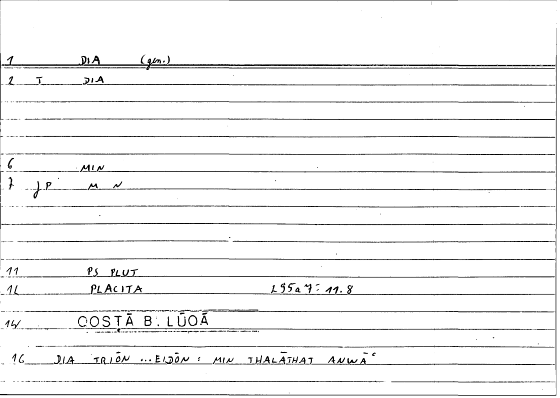 1 DIA (gen.)
2 T DIA
6 MIN
7 JP M N
11 PS PLUT
12 PLACITA L95a7: 11.8
14 QOSṬĀ B. LŪQĀ
16 DIA TRIŌN ... EIDŌN : MIN THALĀTHAT ANWĀʿ